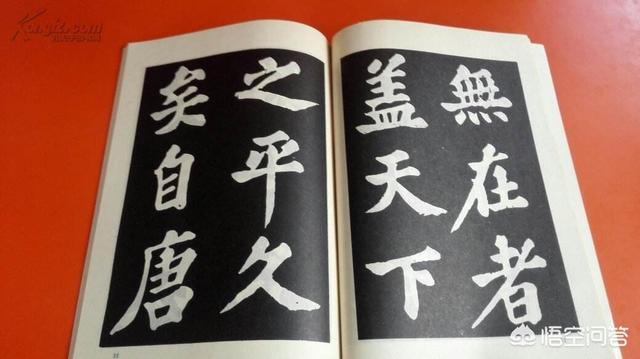 無在者
盖天下
之平久
矣自唐
33
Kongfz.com
悟空问答